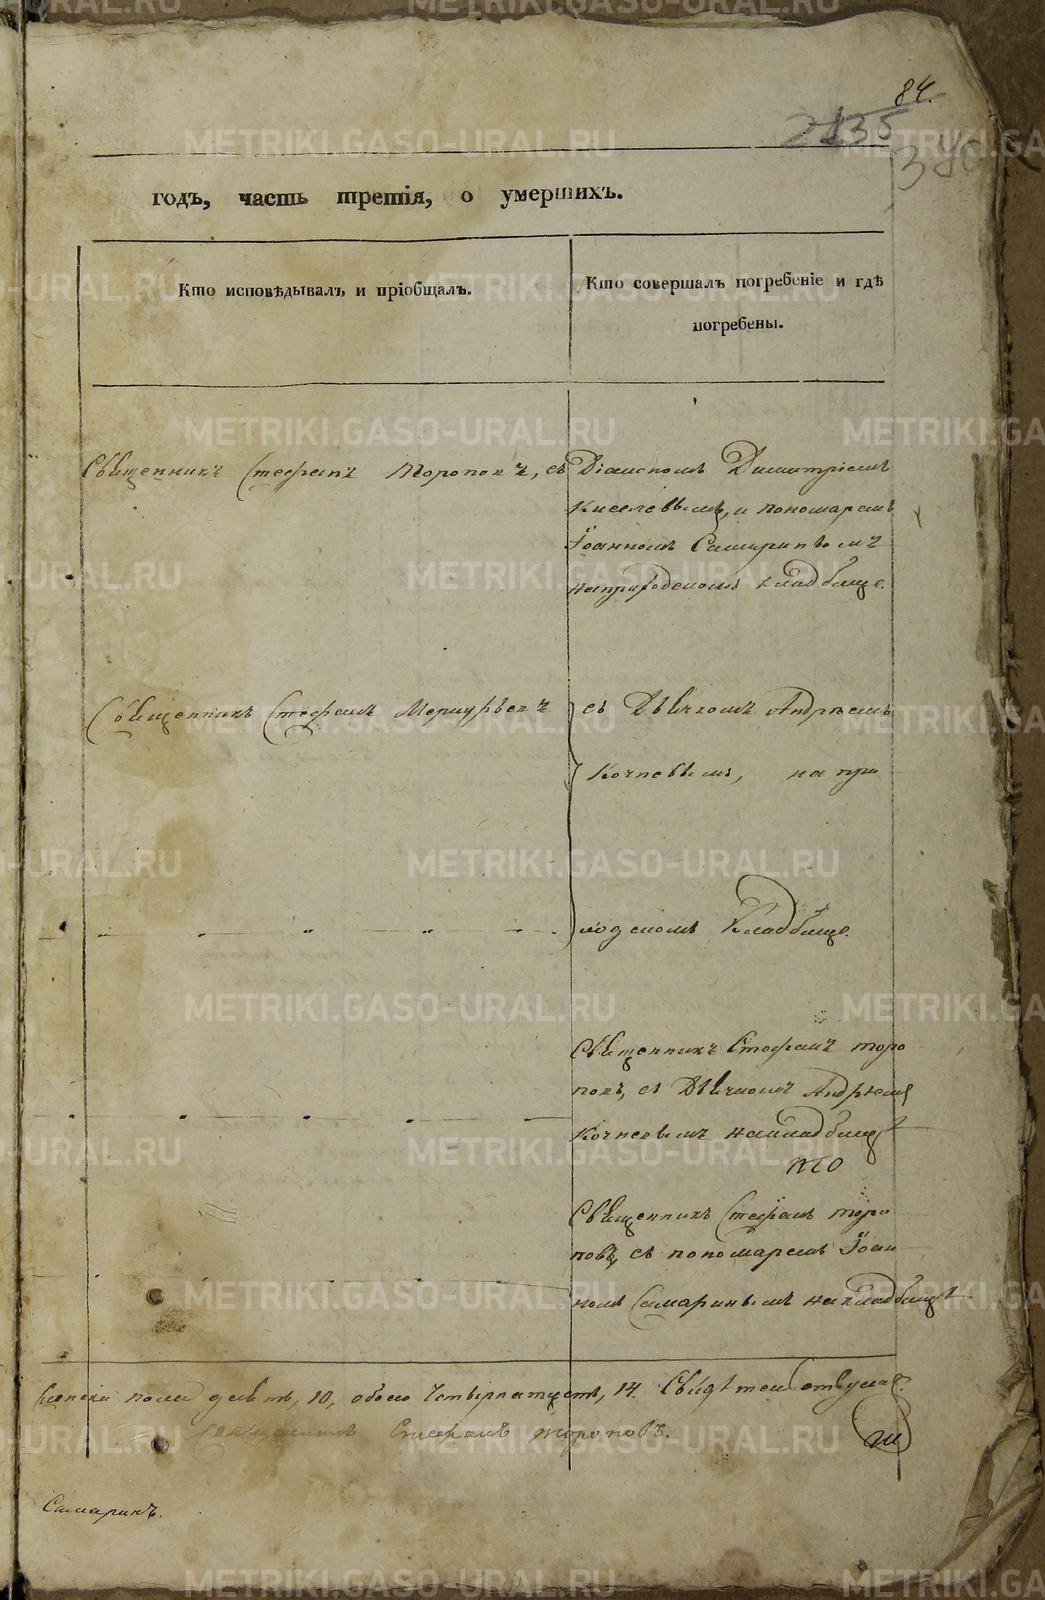 84.
2135
годъ, часть третія, о умершихъ.
Кто исповѣдывалъ и пріобщалъ.
Кто совершалъ погребеніе и гдѣ
погребены.
Священникъ Стефанъ Тороповъ, съ Діакономъ Димитріемъ
Киселевымъ, и пономаремъ
Іоанномъ Самаринымъ
на приходскомъ кладбище.
Священникъ Стефанъ Меркурьевъ съ Дьячкомъ Андреемъ
Кочневымъ, на при
ходскомъ Кладбище.
Священникъ Стефанъ Торо
повъ, съ Дьячкомъ Андреемъ
Кочневымъ на кладбищѣ
Священникъ Стефанъ Торо
повъ, съ пономаремъ Іоан
номъ Самаринымъ на кладбищѣ
пола десять, 10, обоего Четырнатцеть, 14.
Стефанъ Тороповъ.
Самаринъ.
METRIKI.GASO-URAL.RU